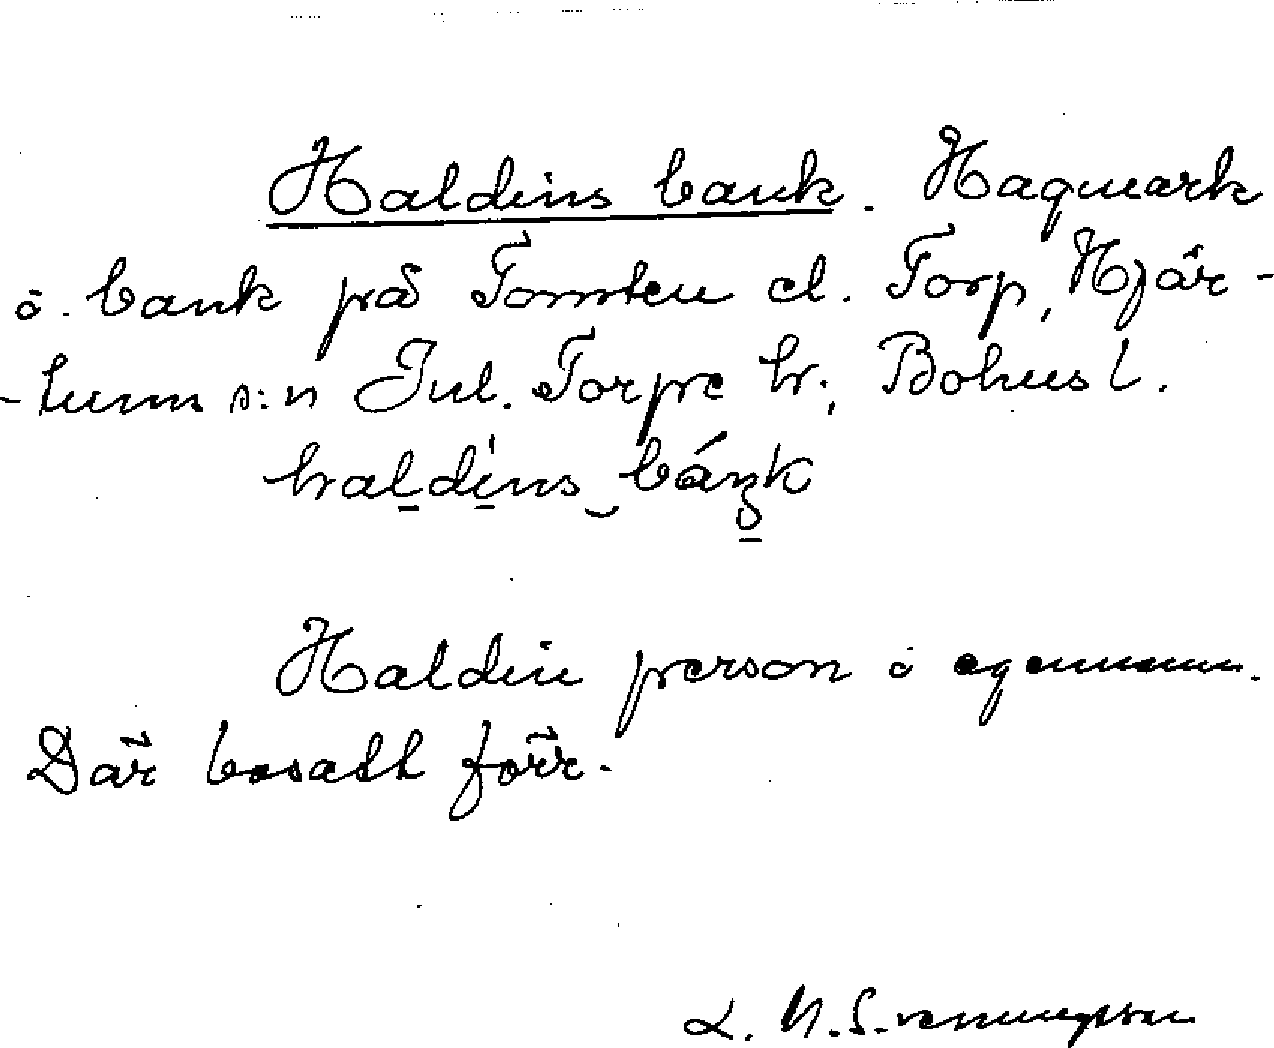 Haldins bank. Hagmark
o. bank på Tomten el. Torp, Hjär-
-tums s:n Inl. Torpe hr., Bohusl.
haldins bánk
Haldin person o egennamn.
Där bosatt förr.